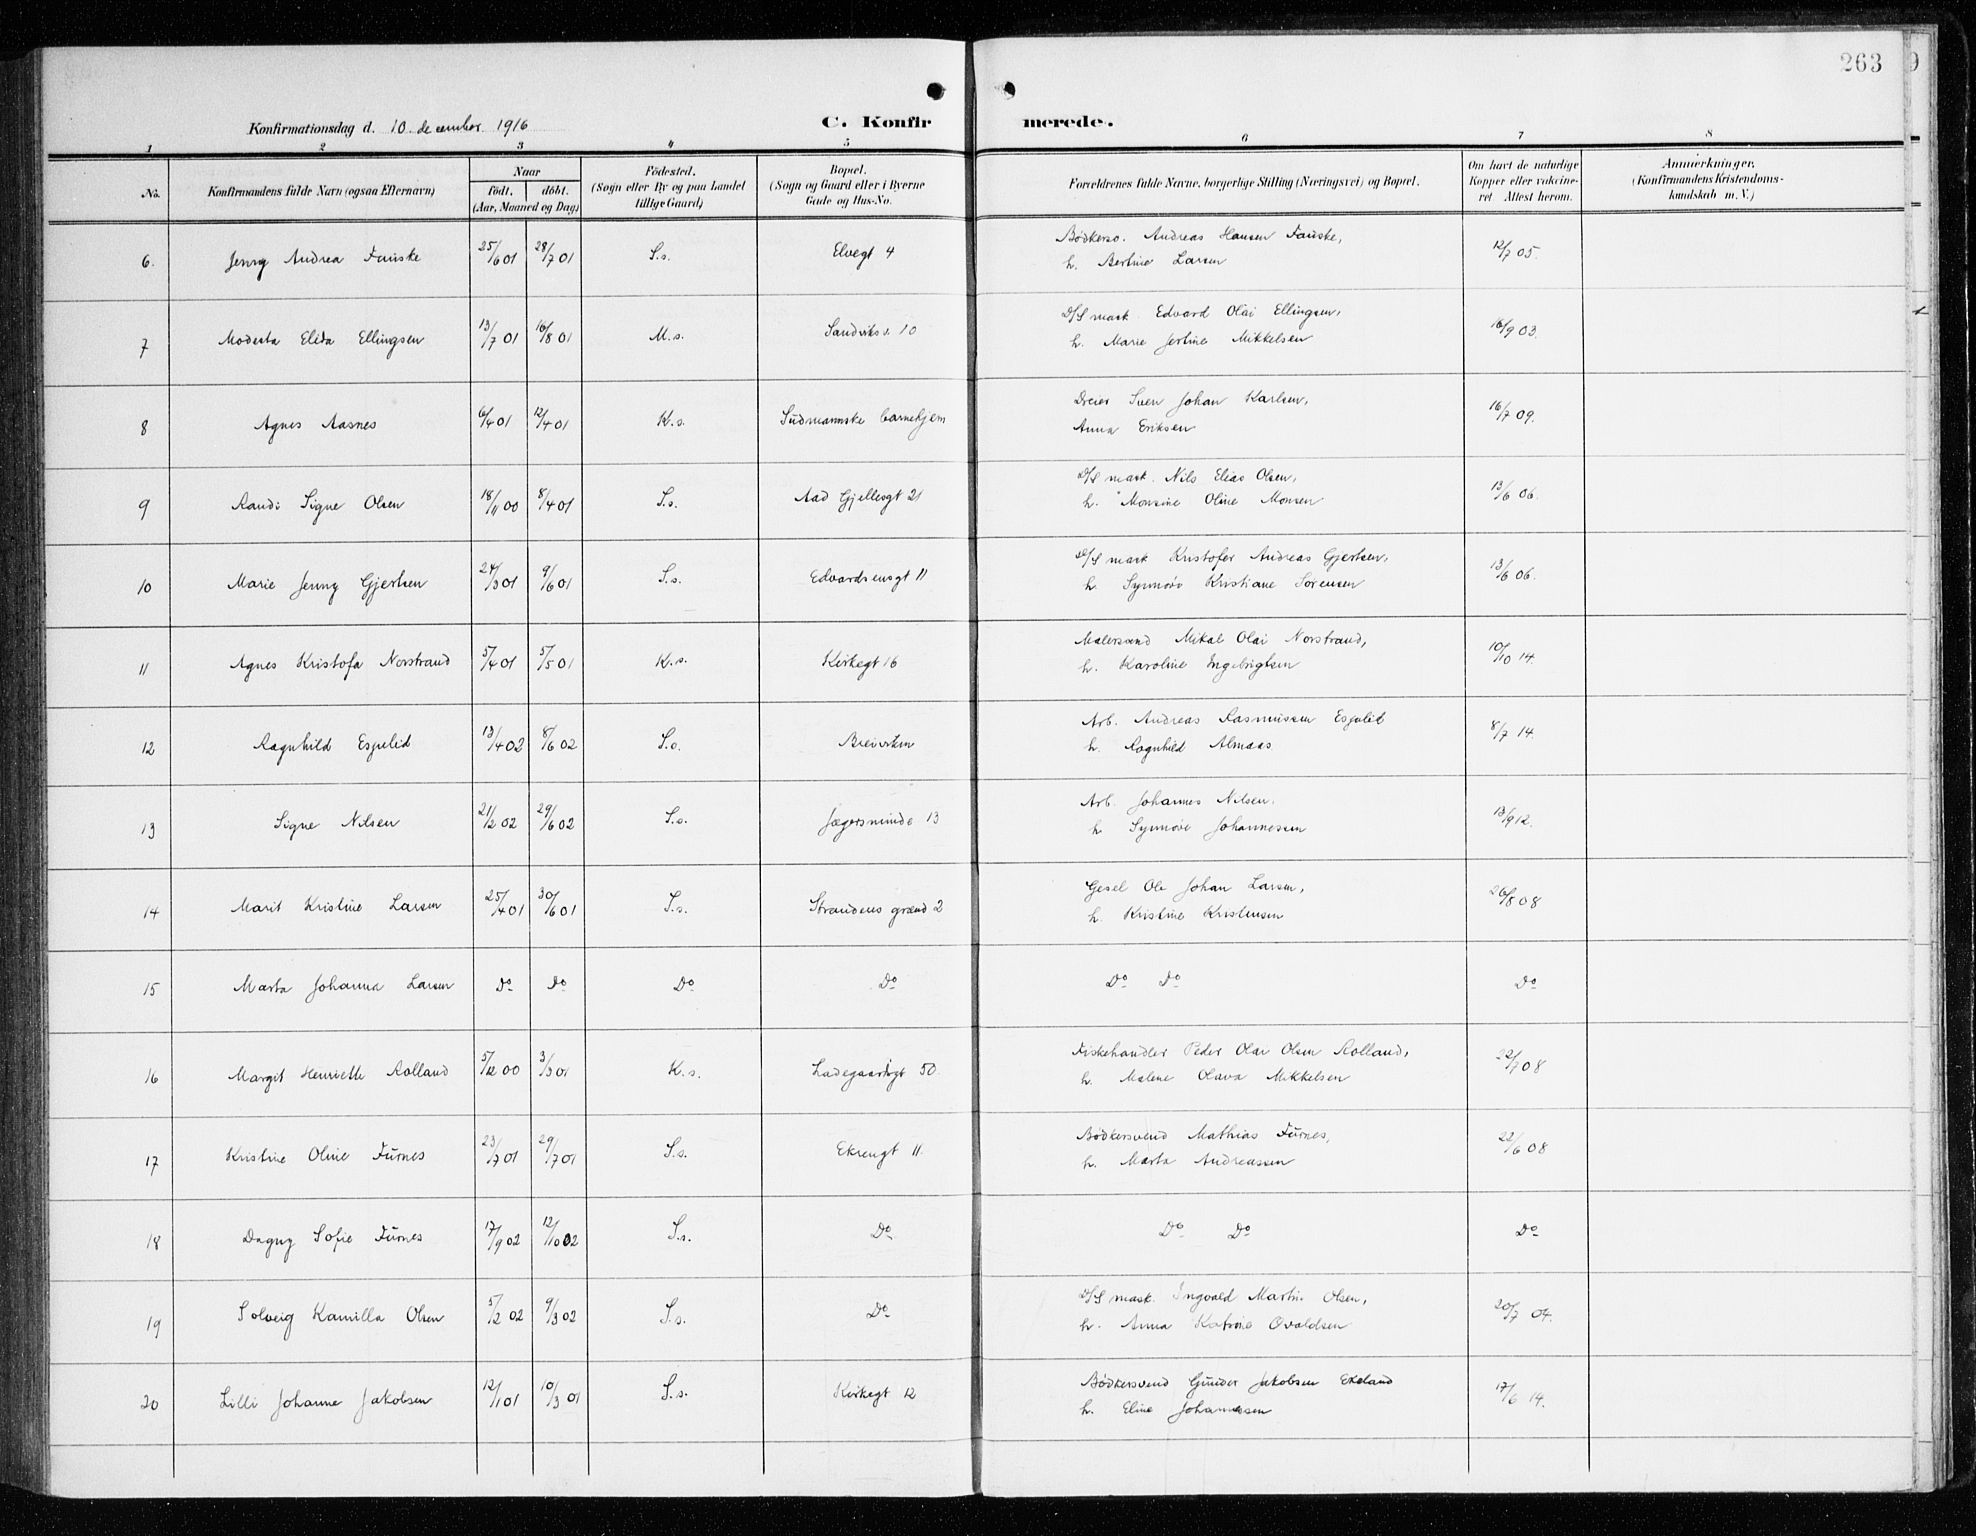 263
Konfirmationsdag d. 10. december 1916
C. Konfirmerede.
1 2 3 4 5 6 7 8
No. Konfirmandens fulde Navn (ogsaa Efternavn) Naar födt. döbt. (Aar, Maaned og Dag) Födested. (Sogn eller By og paa Landet tillige Gaard) Bopæl. (Sogn og Gaard eller i Byerne Gade og Hus-No. Forældrenes fulde Navne, borgerlige Stilling (Næringsvei) og Bopæl. Om havt de naturlige Kopper eller vakcineret. Attest herom. Anmærkninger. (Konfirmandens Kristendomskundskab m. V.)
6. Jenny Andrea Fauske 25/6 01 28/7 01 S.s. Elvegt 4 Bödkersv. Andreas Hansen Fauske, 12/7 05.
h. Bertine Larsen
7 Modesta Elida Ellingsen 13/7 01 16/8 01 M.s. Sandviksv. 10 D/S mask. Edvard Olai Ellingsen, 16/9 03.
h. Marie Jertine Mikkelsen
8 Agnes Aasnes 6/4 01 12/4 01 K.s. Sudmannske barnehjem Dreier Sven Johan Karlsen, 16/7 09.
Anna Eriksen
9 Randi Signe Olsen 18/11 00 8/4 01 S.s. Aad Gjellesgt 21 D/S mask. Nils Elias Olsen, 13/6 06.
h. Monsine Oline Monsen
10 Marie Jenny Gjertsen 24/3 01 9/6 01 S.s. Edvardsensgt 11 D/S mask Kristofer Andreas Gjertsen, 13/6 06.
h. Synnöv Kristiane Sörensen
11 Agnes Kristofa Norstrand 5/4 01 5/5 01 K.s. Kirkegt 16 Malersvend Mikal Olai Norstrand, 10/10 14.
h. Karoline Ingebrigtsen
12 Ragnhild Espelid 13/4 02 8/6 02 S.s. Breiviken Arb. Andreas Rasmussen Espelid 8/7 14.
h. Ragnhild Almaas
13 Signe Nilsen 21/2 02 29/6 02 S.s. Jægersminde 13 Arb. Johannes Nilsen. 13/9 12.
h Synnöve Johannessen
14 Marit Kristine Larsen 25/4 01 30/6 01 S.s. Strandens grænd 2 Gesel Ole Johan Larsen, 26/8 08
h. Kristine Kristensen
15 Marta Johanna Larsen Do Do Do Do Do Do Do
16 Margit Henriette Rolland 5/12 00 3/3 01 K.s. Ladegaardsgt 50. Fiskehandler Peder Olai Olsen Rolland, 22/7 08
h. Malene Olava Mikkelsen
17 Kristine Oline Furnes 23/7 01 29/7 01 S.s. Ekrengt 11. Bödkersvend Mathias Furnes, 22/6 08
h. Marta Andreassen
18 Dagny Sofie Furnes 17/9 02 12/10 02 S.s. Do Do Do Do
19 Solveig Kamilla Olsen 5/2 02 9/3 02 S.s. Do D/S mask. Ingvald Martin Olsen, 20/7 04.
h. Anna Katrine Ovaldsen
20 Lilli Johanne Jakobsen 12/1 01 10/3 01 S.s. Kirkegt 12 Bödkersvend Gunder Jakobsen Ekeland 17/6 14.
h. Eline Johannessen